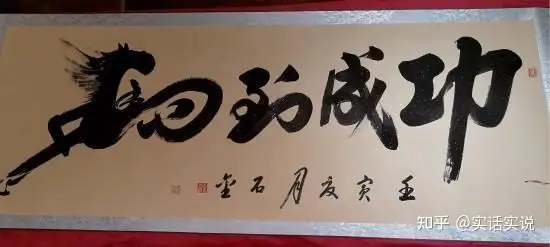 馬到成功
壬寅夏月石
知乎 @实话实说